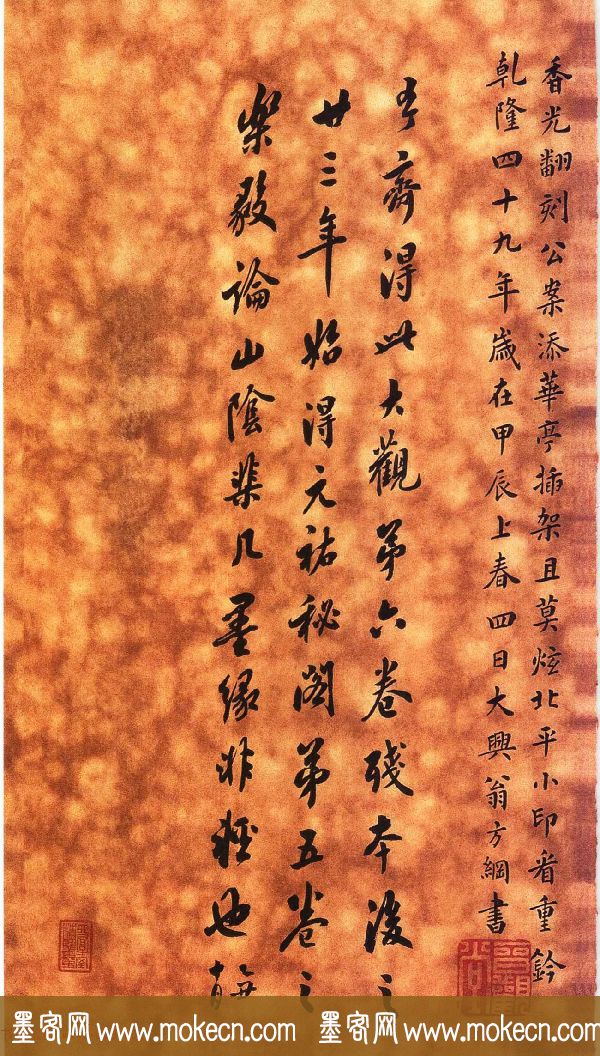 香光翻刻公案添華亭插架且莫炫北平小印看重鈐
乾隆四十九年歲在甲辰上春四日大興翁方綱書
齊得此大觀第六卷殘本後之
廿三年始得元祐秘閣第五卷之
樂毅論山陰棐几墨緣非輕也
墨客网 www.mokecn.com 墨客网 www.mokecn.com